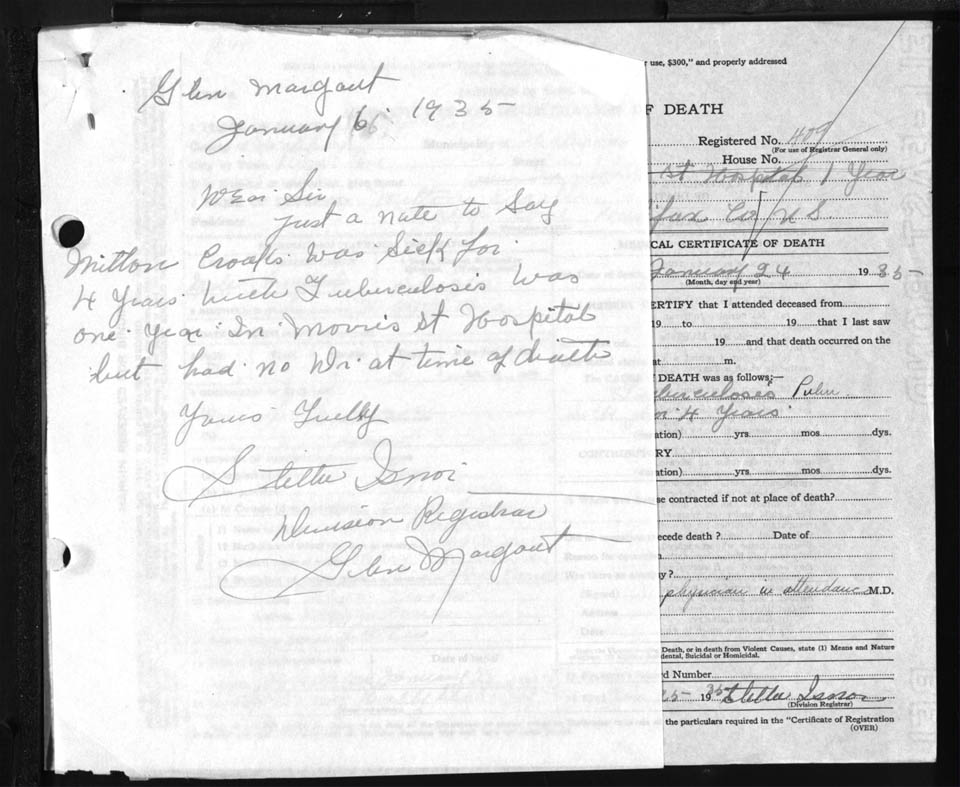 Glen Margaut
January 6, 1935
Dear Sir
Just a note to Say
Milton Croaks Was Sick for
4 Years With Tuberculosis Was
one Year In Morris st Hospital
but had no Dr. at time of death
Yours Truelly
Stella Isnor
Division Registrar
Glen Margaut
use, $300," and properly addressed
F DEATH
Registered No. 409
(For use of Registrar General only)
House No.
st Hospital 1 Year
ifax Co N S
CAL CERTIFICATE OF DEATH
January 24 1935
(Month, day and year)
ERTIFY that I attended deceased from
19 to 19 that I last saw
19 and that death occurred on the
at m.
DEATH was as follows;—
berculosis Pulm
4 Years
ation) yrs. mos. dys.
RY
ation) yrs. mos. dys.
se contracted if not at place of death?
ecede death ? Date of
y?
physician in attendance M.D.
Death, or in death from Violent Causes, state (1) Means and Nature
dental, Suicidal or Homicidal.
rd Number
25 1935 Stella Isnor
(Division Registrar)
the particulars required in the "Certificate of Registration
(OVER)